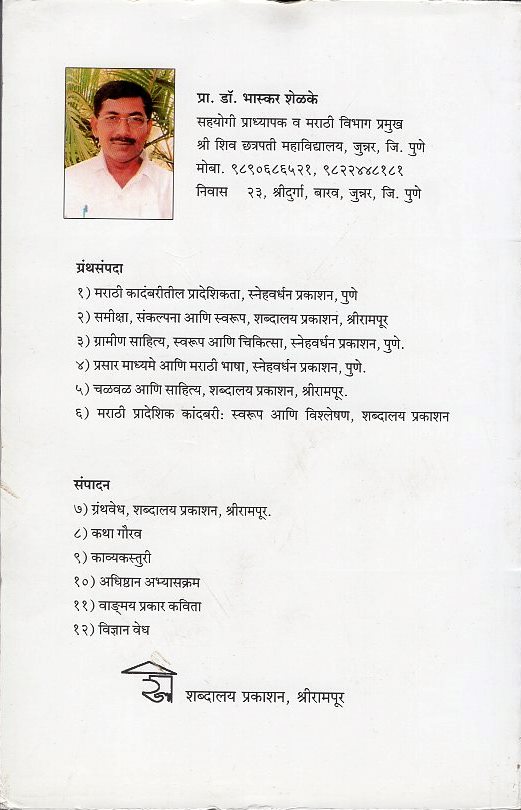 प्रा. डॉ. भास्कर शेळके
सहयोगी प्राध्यापक व मराठी विभाग प्रमुख
श्री शिव छत्रपती महाविद्यालय, जुन्नर, जि. पुणे
मोबा. ९८९०६८६५२१, ९८२२४४८१८१
निवास २३, श्रीदुर्गा, बारव, जुन्नर, जि. पुणे
ग्रंथसंपदा
१) मराठी कादंबरीतील प्रादेशिकता, स्नेहवर्धन प्रकाशन, पुणे
२) समीक्षा, संकल्पना आणि स्वरूप, शब्दालय प्रकाशन, श्रीरामपूर
३) ग्रामीण साहित्य, स्वरूप आणि चिकित्सा, स्नेहवर्धन प्रकाशन, पुणे.
४) प्रसार माध्यमे आणि मराठी भाषा, स्नेहवर्धन प्रकाशन, पुणे.
५) चळवळ आणि साहित्य, शब्दालय प्रकाशन, श्रीरामपूर.
६) मराठी प्रादेशिक कांदबरी: स्वरूप आणि विश्लेषण, शब्दालय प्रकाशन
संपादन
७) ग्रंथवेध, शब्दालय प्रकाशन, श्रीरामपूर.
८) कथा गौरव
९) काव्यकस्तुरी
१०) अधिष्ठान अभ्यासक्रम
११) वाङ्मय प्रकार कविता
१२) विज्ञान वेध
शब्दालय प्रकाशन, श्रीरामपूर